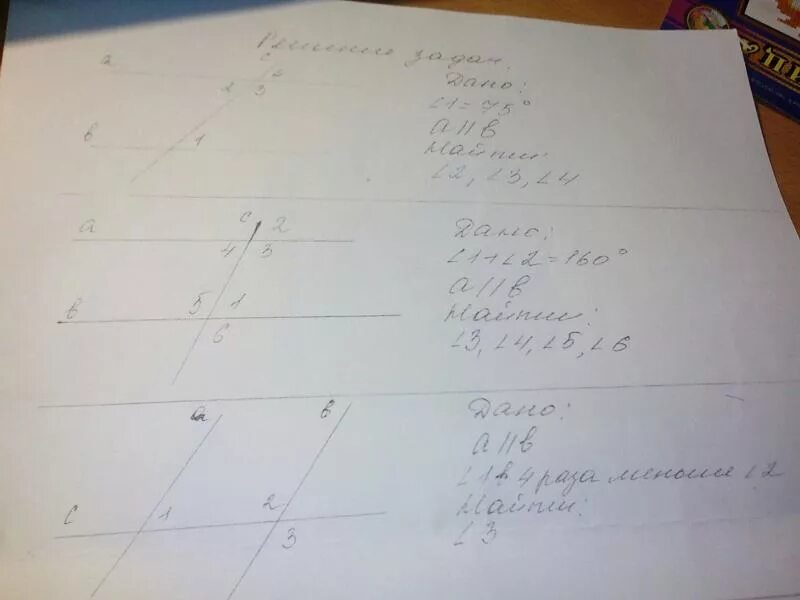 Решение задач.
a
c
4
2 3
b
1
Дано:
∠1=75°
a||b
Найти:
∠2, ∠3, ∠4
a
c 2
4 3
b
5 1
6
Дано:
∠1+∠2=160°
a||b
Найти:
∠3, ∠4, ∠5, ∠6
a
b
c
1
2
3
Дано:
a||b
∠1 в 4 раза меньше ∠2
Найти:
∠3